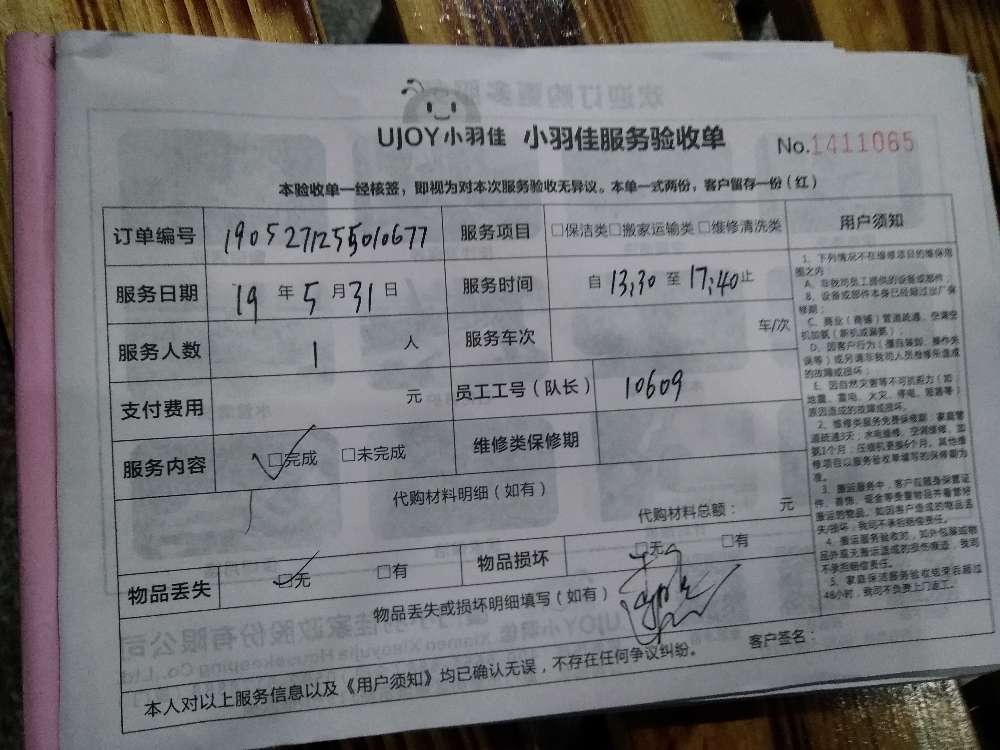 UJOY小羽佳 小羽佳服务验收单 No.1411065
本验收单一经核签，即视为对本次服务验收无异议。本单一式两份，客户留存一份（红）
订单编号 1905271255010677 服务项目 □保洁类□搬家运输类 □维修清洗类
服务日期 19 年 5 月 31 日 服务时间 自 13:30 至 17:40 止
服务人数 1 人 服务车次 车/次
支付费用 元 员工工号（队长） 10609
服务内容 □完成 □未完成 维修类保修期
代购材料明细（如有）
代购材料总额： 元
物品丢失 □无 □有 物品损坏 □无 □有
物品丢失或损坏明细填写（如有）
客户签名：
本人对以上服务信息以及《用户须知》均已确认无误，不存在任何争议纠纷。
用户须知
1、下列情况不在维修项目的维保范
围之内：
A、非我司员工提供的设备或部件；
B、设备或部件本身已经超过出厂保
修期；
C、商业（商铺）管道疏通、空调空
机加氨（新机或漏氨）；
D、因客户行为（擅自装卸、操作失
误等）或另请非我司人员维修所造成
的故障或损坏；
E、因自然灾害等不可抗拒力（如：
地震、雷电、火灾、停电、短路等）
原因造成的故障或损坏。
2、维修类服务免费保修期：家庭管
道疏通3天；水电维修、空调维修、加
氨1个月；压缩机更换6个月。其他维
修项目以服务验收单填写的保修期为
准。
3、搬运服务中，客户应随身保管证
件、首饰、现金等贵重物品并看管好
搬运的物品。如因客户造成的物品丢
失/损坏，我司不承担赔偿责任。
4、搬运服务验收时，如外包装或物
品外观无搬运造成的损伤痕迹，我司
不承担赔偿责任。
5、家庭保洁服务验收结束后超过
48小时，我司不负责上门返工。